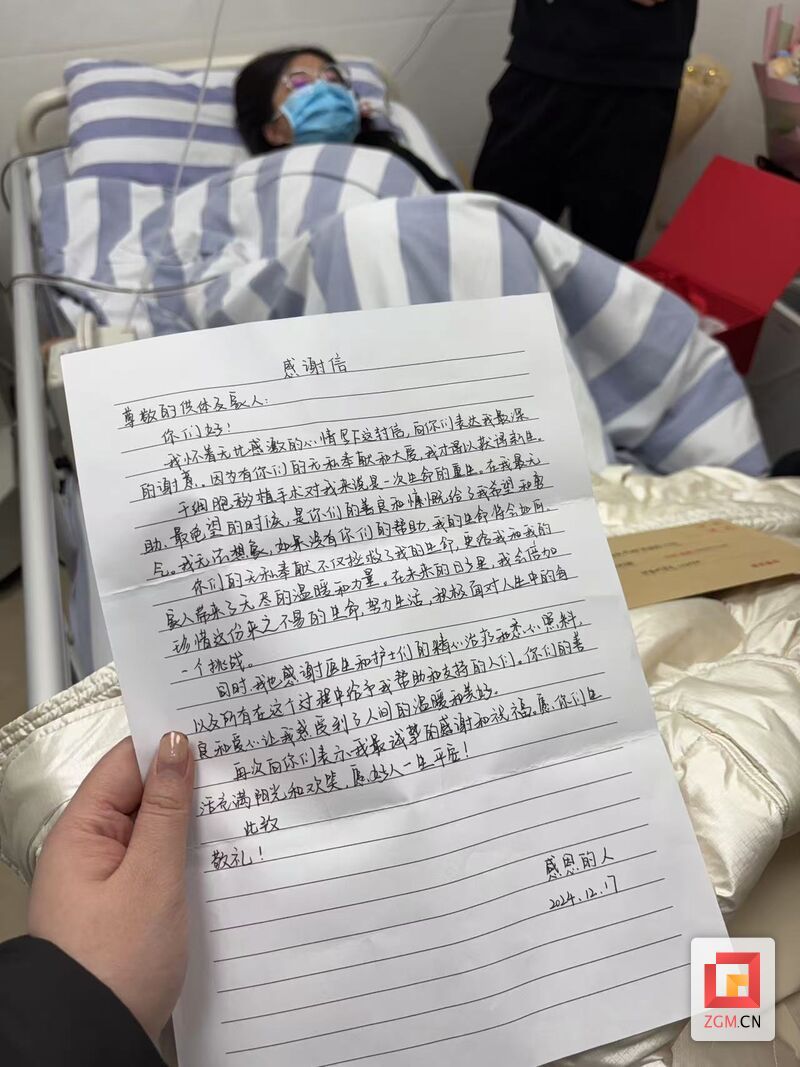 感谢信
尊敬的供体及家人：
你们好！
我怀着无比感激的心情写下这封信，向你们表达我最深
的谢意。因为有你们的无私奉献和大爱，我才得以获得新生。
干细胞移植手术对我来说是一次生命的重生。在我最无
助、最绝望的时刻，是你们的善良和慷慨给了我希望和勇
气。我无法想象，如果没有你们的帮助，我的生命将会如何。
你们的无私奉献不仅拯救了我的生命，更给我和我的
家人带来了无尽的温暖和力量。在未来的日子里，我会倍加
珍惜这份来之不易的生命，努力生活，积极面对人生中的每
一个挑战。
同时，我也感谢医生和护士们的精心治疗和悉心照料，
以及所有在这个过程中给予我帮助和支持的人们。你们的善
良和爱心让我感受到了人间的温暖和美好。
再次向你们表示我最诚挚的感谢和祝福。愿你们生
活充满阳光和欢笑，愿好人一生平安！
此致
敬礼！
感恩的人
2024.12.17
ZGM.CN